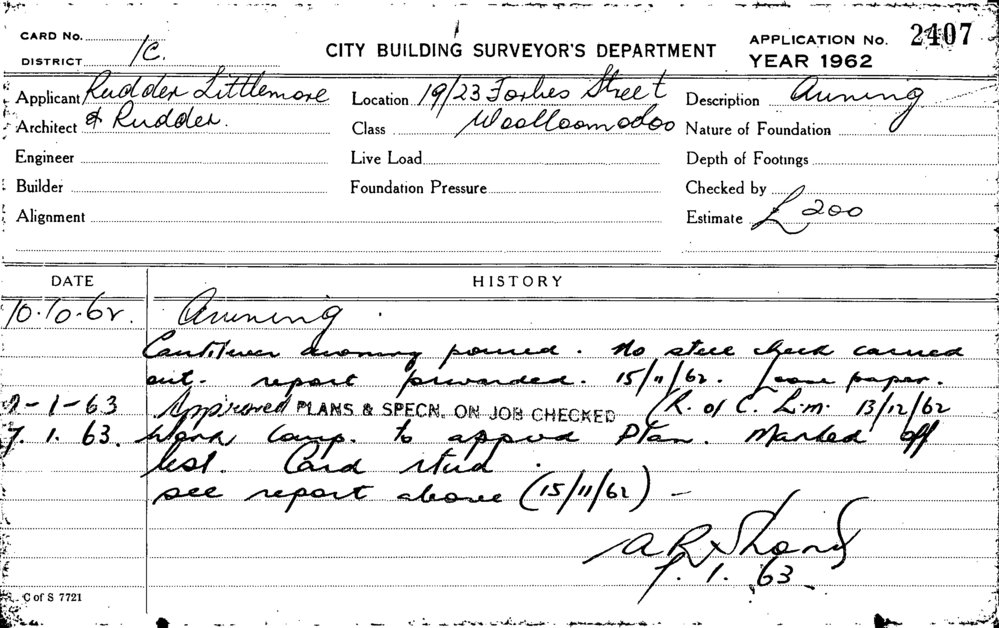 CARD No.
DISTRICT 1C.
CITY BUILDING SURVEYOR'S DEPARTMENT
APPLICATION No. 2407
YEAR 1962
Applicant Rudder Littlemore
Architect & Rudder.
Engineer
Builder
Alignment
Location 19/23 Forbes Street
Class Woolloomooloo
Live Load
Foundation Pressure
Description Awning
Nature of Foundation
Depth of Footings
Checked by
Estimate £200
DATE HISTORY
10.10.62. Awning.
Cantilever awning poured. No steel check carried
out. report forwarded. 15/11/62. Loose paper.
-1-63 Approved PLANS & SPECN. ON JOB CHECKED (R. of C. L.m. 13/12/62
7. 1. 63. Work comp. to appvd Plan. Marked off
list. Card
see report above (15/11/62) -
7. 1. 63.
C of S 7721